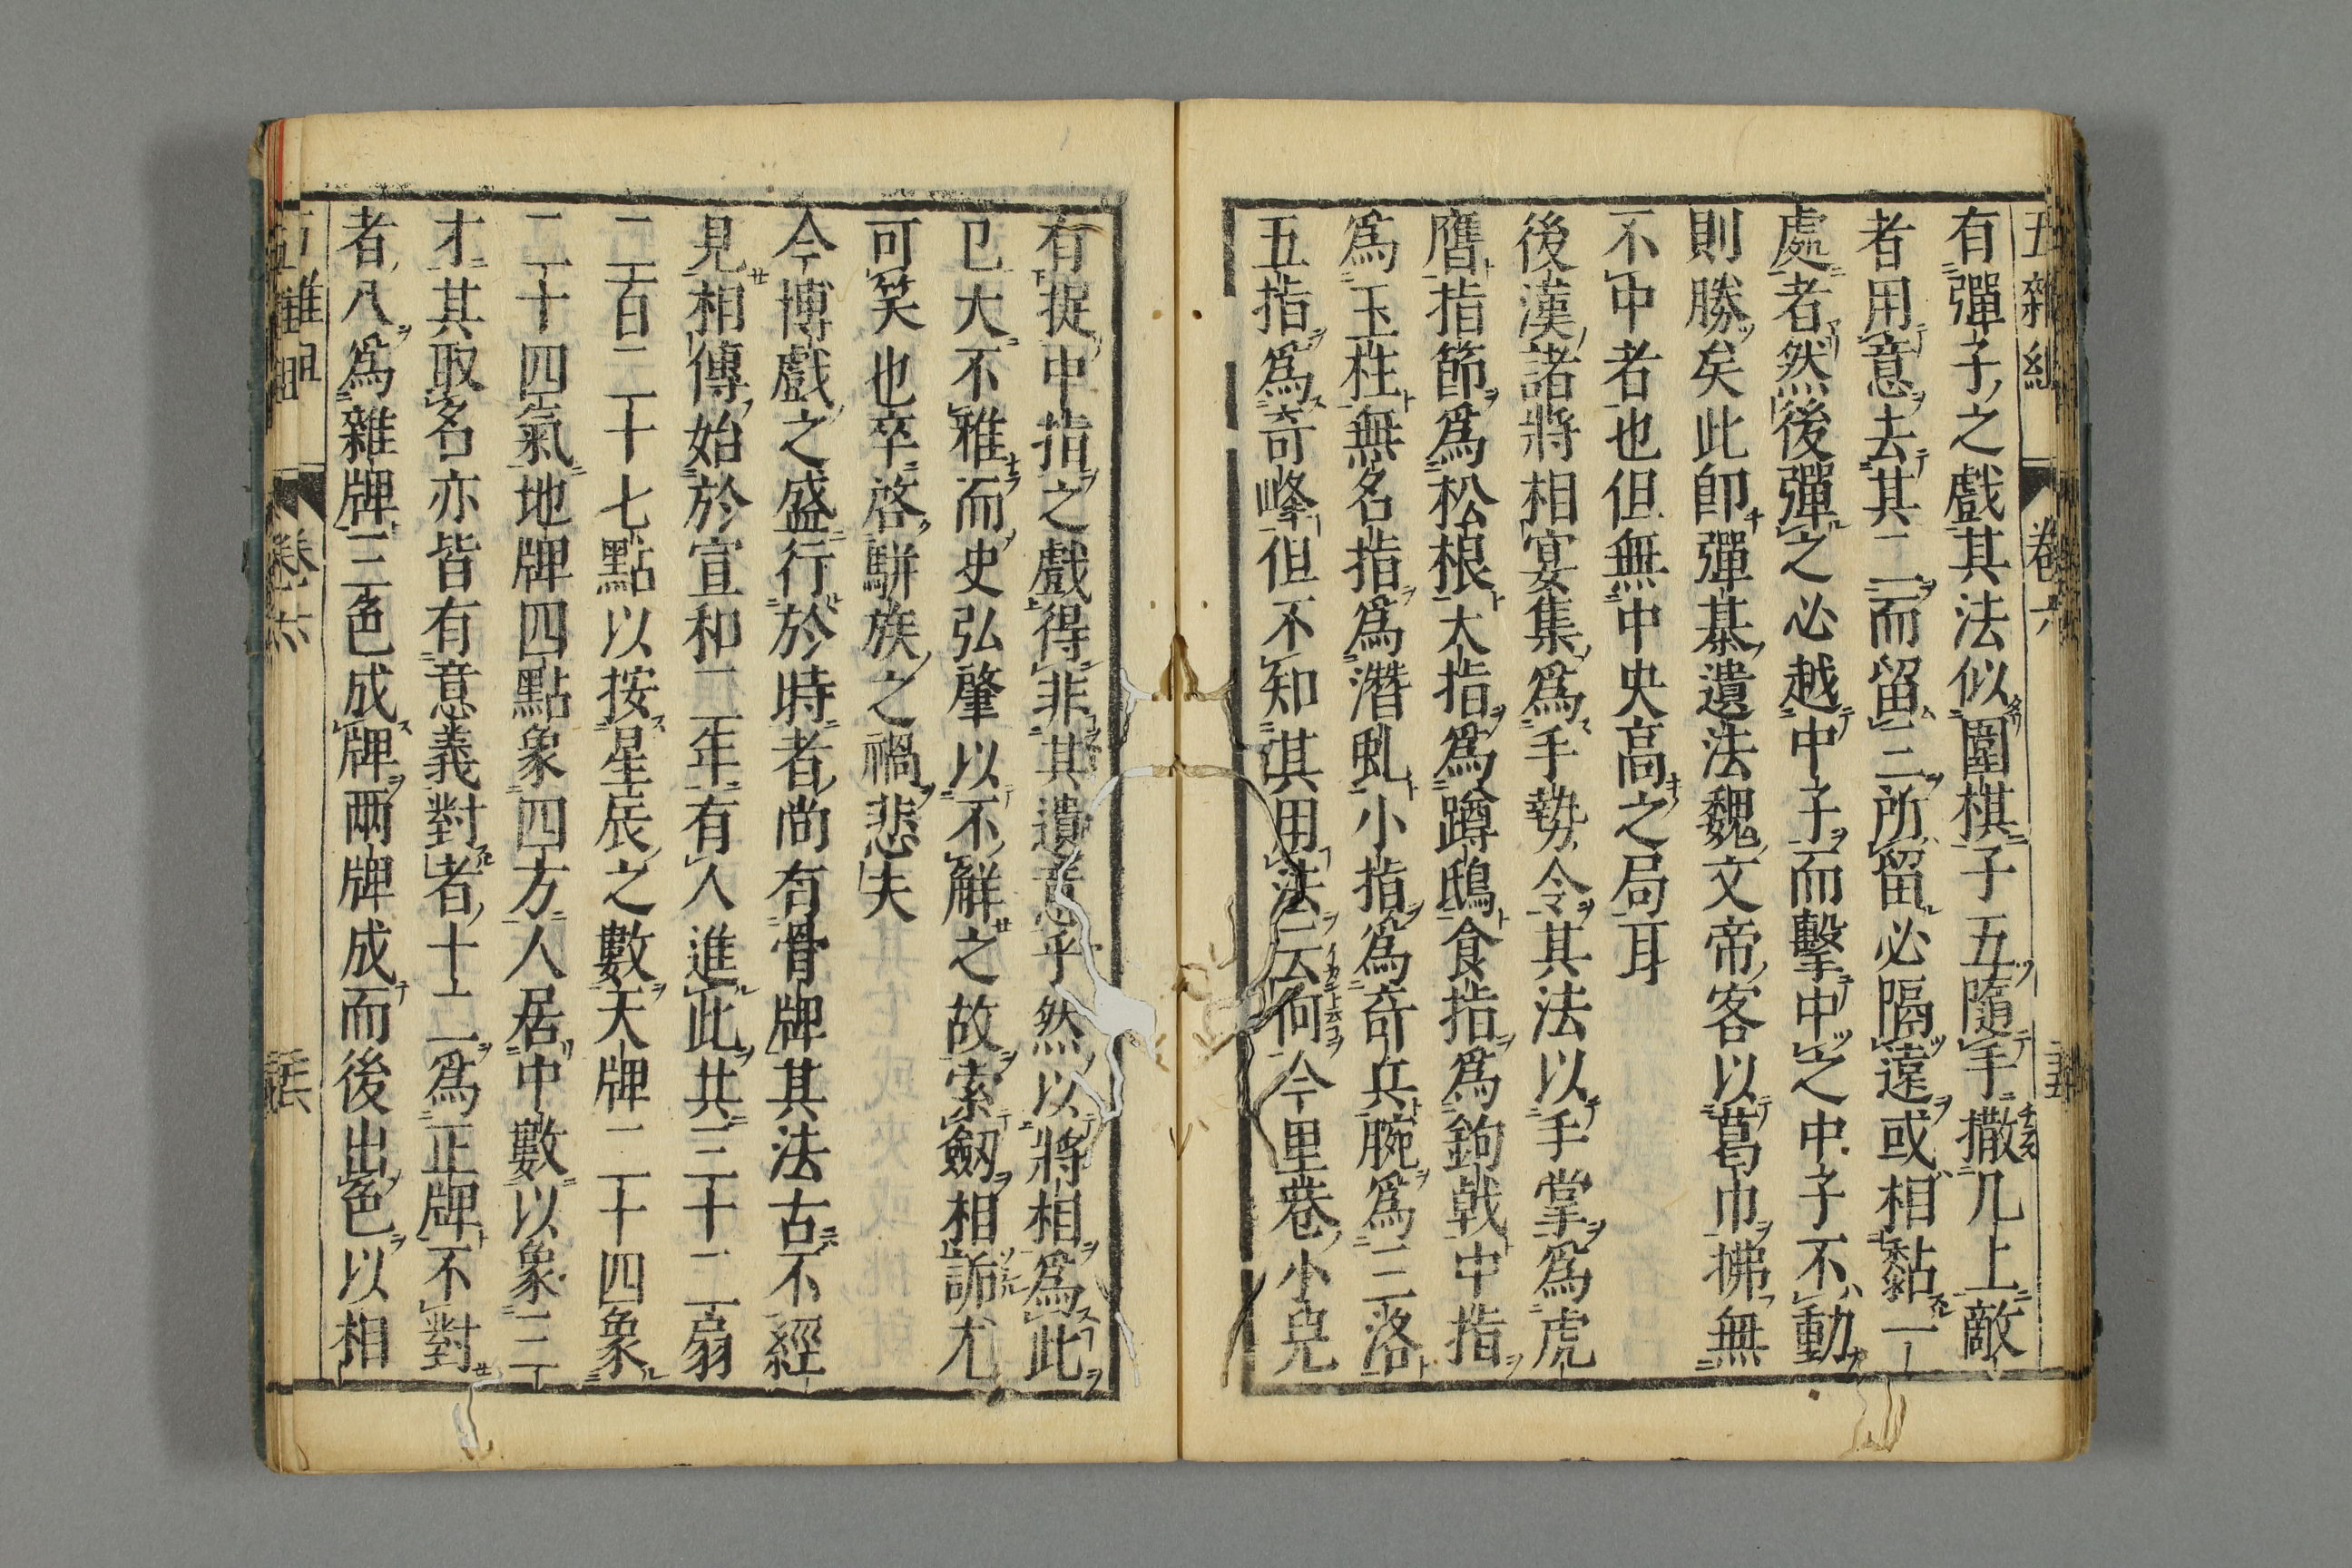 五雜組　卷六
有彈子之戲其法似圍棋子五隨手撒几上敵
者用意去其二而留三所留必隔遠或相黏一
處者然後彈之必越中子而擊中之中子不動
則勝矣此卽彈棊遺法魏文帝客以葛巾拂無
不中者也但無中央高之局耳
後漢諸將相宴集爲手勢令其法以手掌爲虎
膺指節爲松根大指爲蹲鴟食指爲鉤戟中指
爲玉柱無名指爲潛虬小指爲奇兵腕爲三洛
五指爲奇峰但不知其用法云何今里巷小兒
有捉中指之戲得非其遺意乎然以將相爲此
已大不雅而史弘肇以不解之故索劔相詬尤
可笑也卒啓駢族之禍悲夫
今博戲之盛行於時者尚有骨牌其法古不經
見相傳始於宣和二年有人進此共三十二扇
二百二十七點以按星辰之數天牌二十四象
二十四氣地牌四點象四方人居中數以象三
才其取名亦皆有意義對者十二爲正牌不對
者八爲雜牌三色成牌兩牌成而後出色以相
卷六